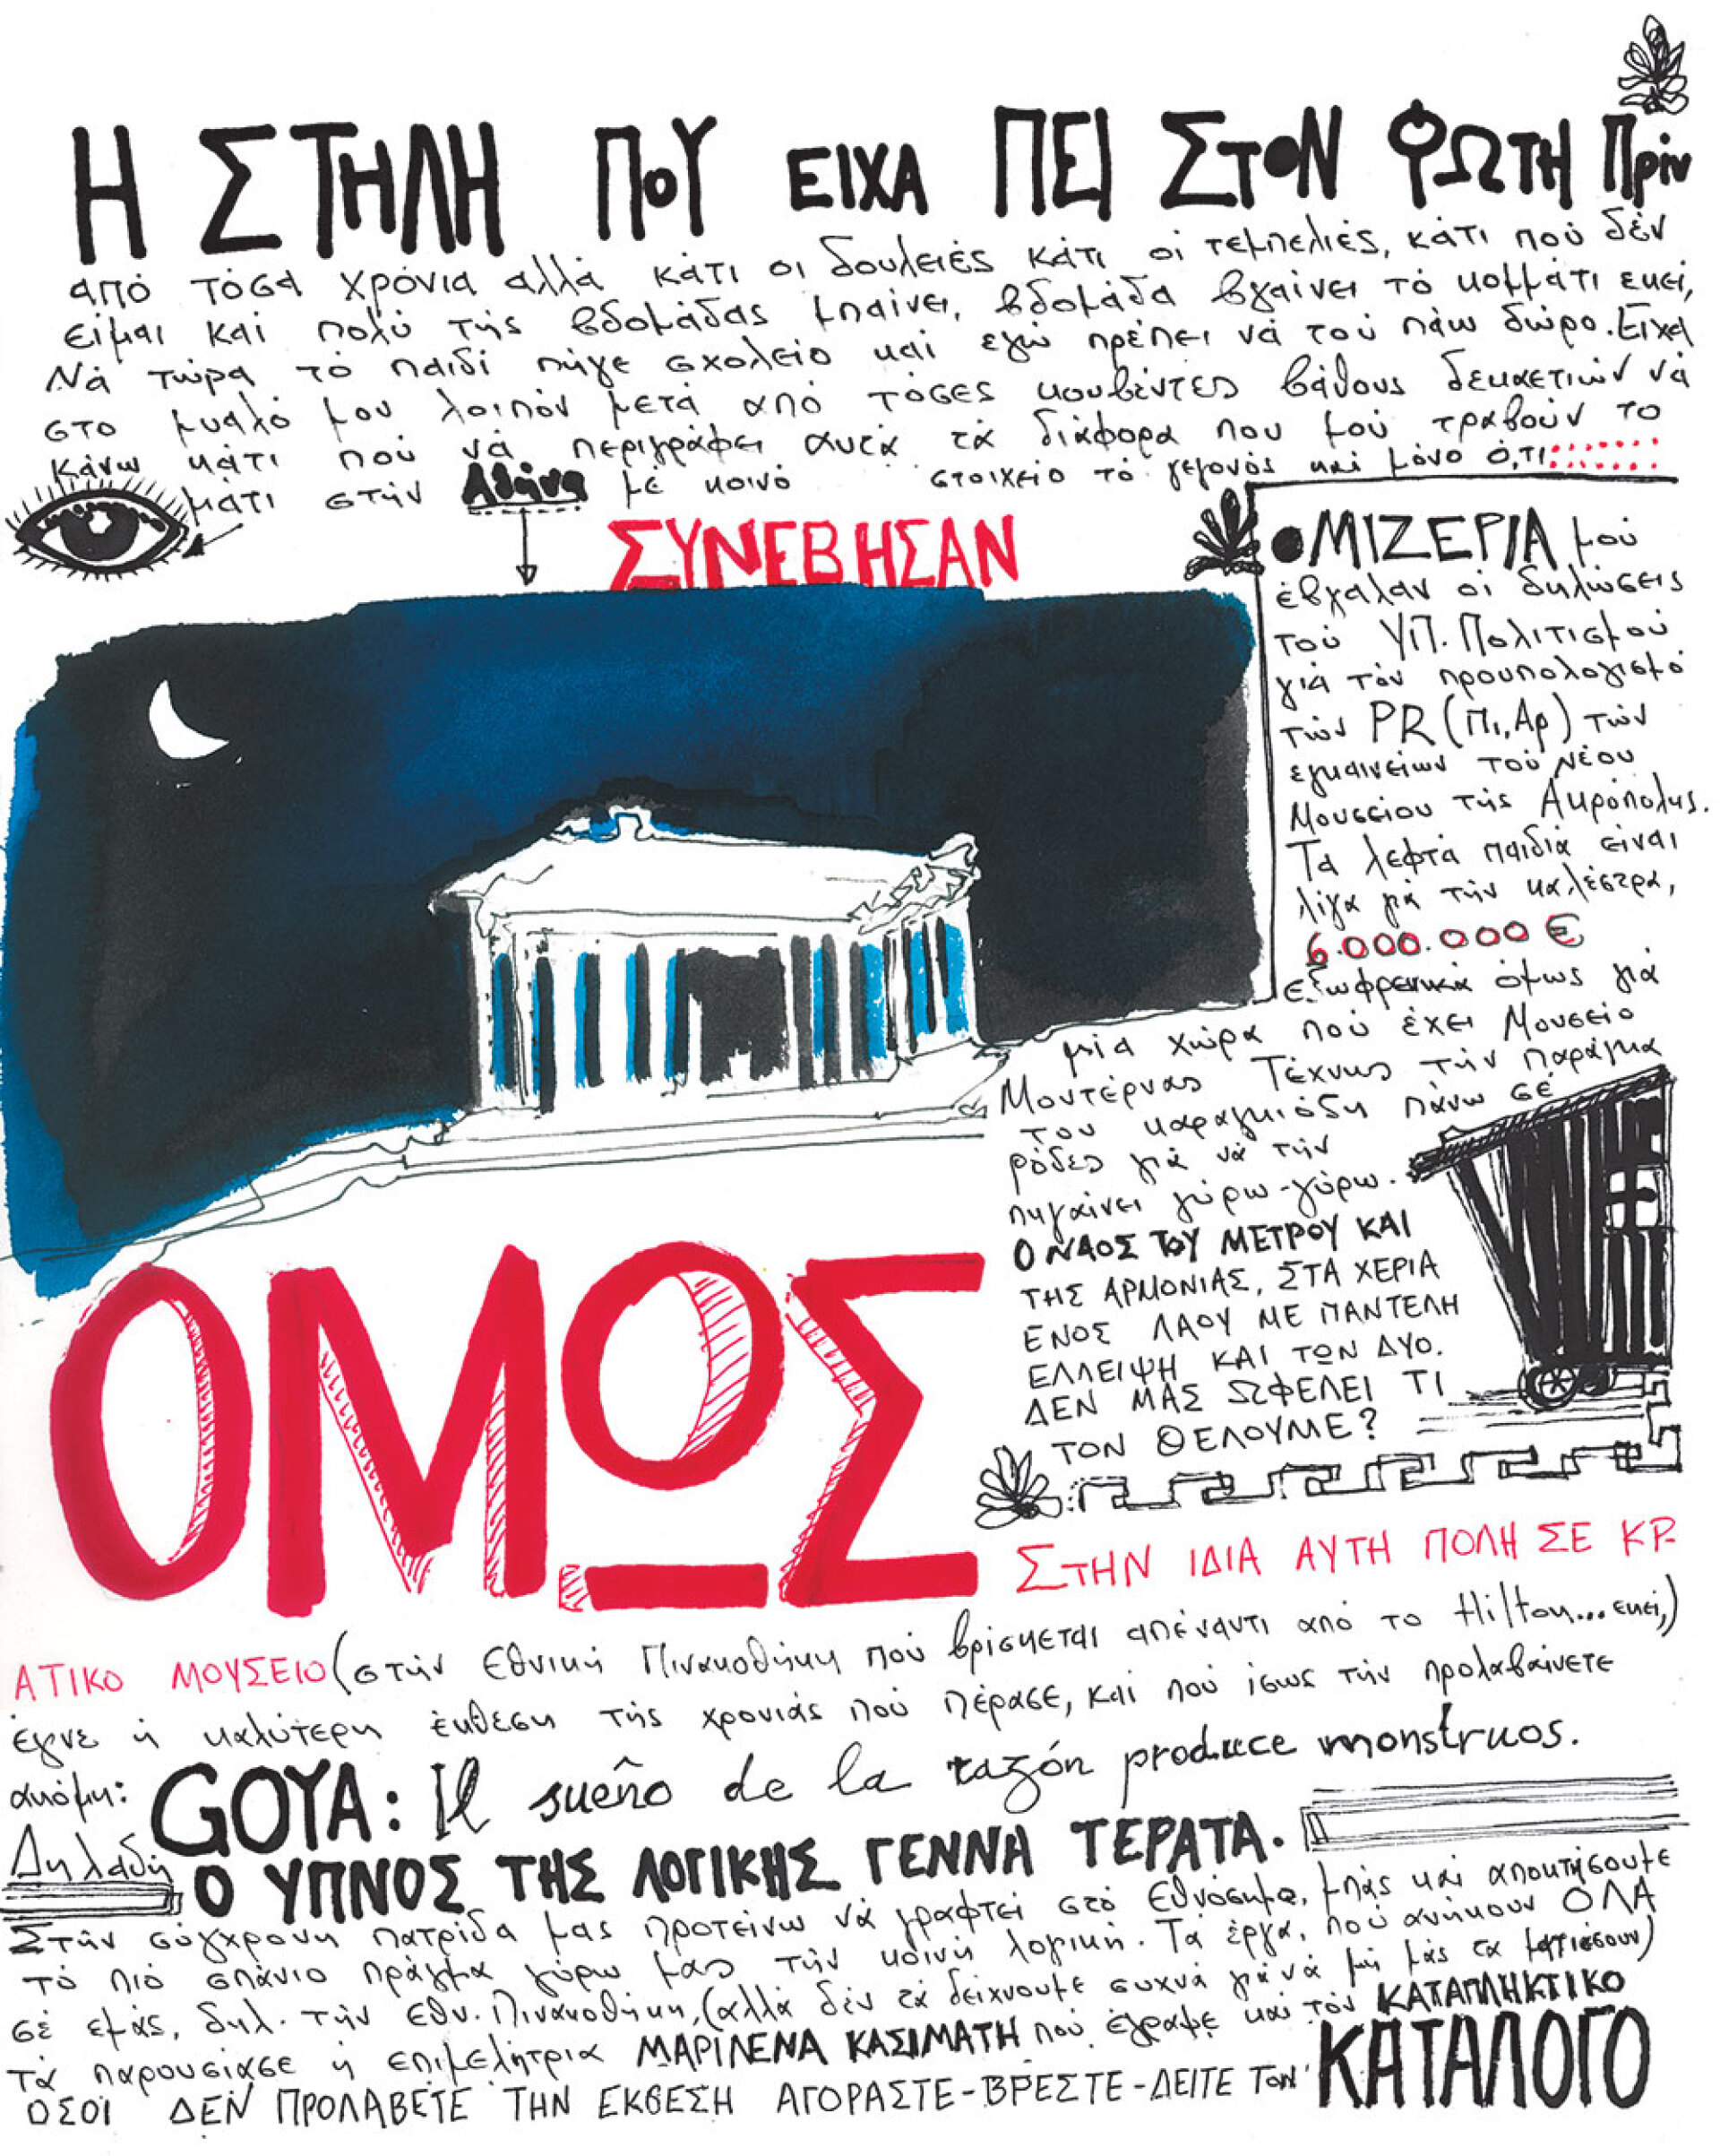 Η ΣΤΗΛΗ ΠΟΥ ΕΙΧΑ ΠΕΙ ΣΤΟΝ ΦΩΤΗ Πρίν
από τόσα χρόνια αλλά κάτι οι δουλειές κάτι οι τεμπελιές, κάτι πού δέν
είμαι καί πολύ τής βδομάδας μπαίνει, βδομάδα βγαίνει τό κομμάτι εκεί,
Νά τώρα τό παιδί πήγε σχολείο καί εγώ πρέπει νά τού πάω δώρο. Είχα
στο μυαλό μου λοιπόν μετά από τόσες κουβέντες βάθους δεκαετιών νά
κάνω κάτι πού νά περιγράφει αυτά τά διάφορα που μού τραβούν το
μάτι στήν Αθήνα μέ κοινό στοιχείο τό γεγονός καί μόνο ό,τι:
ΣΥΝΕΒΗΣΑΝ
ΜΙΖΕΡΙΑ μού
έβγαλαν οι δηλώσεις
τού ΥΠ. Πολιτισμού
γιά τόν προυπολογισμό
τών PR (Πι, Αρ) τών
εγκαινείων τού Νέου
Μουσείου τής Ακρόπολης.
Τα λεφτά παιδιά είναι
λίγα γιά τήν καλέστρα,
6.000.000 €
εξωφρενικά όμως γιά
μία χώρα πού έχει Μουσείο
Μοντέρνας Τέχνης τήν παράγκα
του καραγκιόζη πάνω σέ
ρόδες γιά νά τήν
πηγαίνει γύρω-γύρω.
Ο ΝΑΟΣ ΤΟΥ ΜΕΤΡΟΥ ΚΑΙ
ΤΗΣ ΑΡΜΟΝΙΑΣ, ΣΤΑ ΧΕΡΙΑ
ΕΝΟΣ ΛΑΟΥ ΜΕ ΠΑΝΤΕΛΗ
ΕΛΛΕΙΨΗ ΚΑΙ ΤΩΝ ΔΥΟ.
ΔΕΝ ΜΑΣ ΩΦΕΛΕΙ ΤΙ
ΤΟΝ ΘΕΛΟΥΜΕ?
ΟΜΩΣ
ΣΤΗΝ ΙΔΙΑ ΑΥΤΗ ΠΟΛΗ ΣΕ ΚΡ-
ΑΤΙΚΟ ΜΟΥΣΕΙΟ (στήν Εθνική Πινακοθήκη πού βρίσκεται απέναντι από το Hilton... εκεί,)
έγινε ή καλύτερη έκθεση τής χρονιάς πού πέρασε, καί πού ίσως τήν προλαβαίνετε
ακόμη: GOYA: Il sueño de la razón produce monstruos.
Δηλαδή Ο ΥΠΝΟΣ ΤΗΣ ΛΟΓΙΚΗΣ ΓΕΝΝΑ ΤΕΡΑΤΑ.
Στήν σύγχρονη πατρίδα μας προτείνω νά γραφτεί στό εθνόσημο, μπάς καί αποκτήσουμε
τό πιό σπάνιο πράγμα γύρω μας τήν κοινή λογική. Τά έργα, πού ανήκουν ΟΛΑ
σέ εμάς, δηλ. τήν Εθν. Πινακοθήκη, (αλλά δέν τά δείχνουμε συχνά γιά νά μή μάς τα ματιάσουν)
τά παρουσίασε ή επιμελήτρια ΜΑΡΙΛΕΝΑ ΚΑΣΙΜΑΤΗ πού έγραψε καί τόν ΚΑΤΑΠΛΗΚΤΙΚΟ
ΟΣΟΙ ΔΕΝ ΠΡΟΛΑΒΕΤΕ ΤΗΝ ΕΚΘΕΣΗ ΑΓΟΡΑΣΤΕ-ΒΡΕΣΤΕ-ΔΕΙΤΕ ΤΟΝ ΚΑΤΑΛΟΓΟ